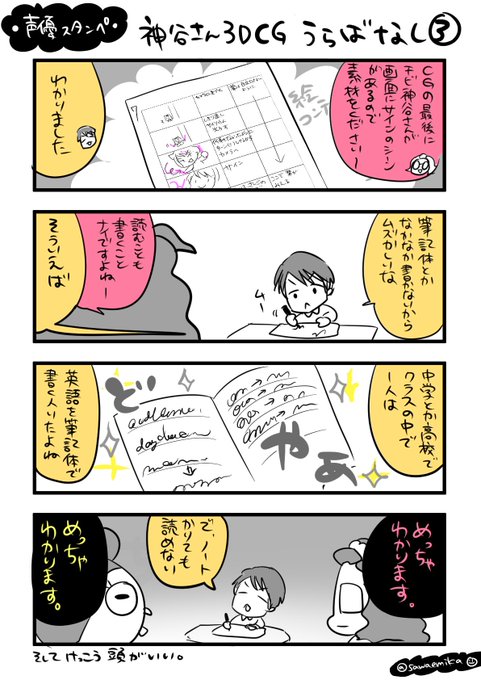 ・声優スタンペ・
神谷さん3DCG うらばなし③
CGの最後に
チビ神谷さんが
画面にサインのシーン
があるので
素材をくださいー
絵コンテ
サイン
わかりました
筆記体とか
なかなか書かないから
ムズかしいな
ムー
読むことも
書くこと
ナイですよねー
そういえば
中学とか高校で
クラスの中で
1人は
どやあ
英語を筆記体で
書く人いたよね
めっちゃ
わかります。
で、ノート
かりても
読めない
めっちゃ
わかります。
そしてけっこう頭がいい。
@sawaemika